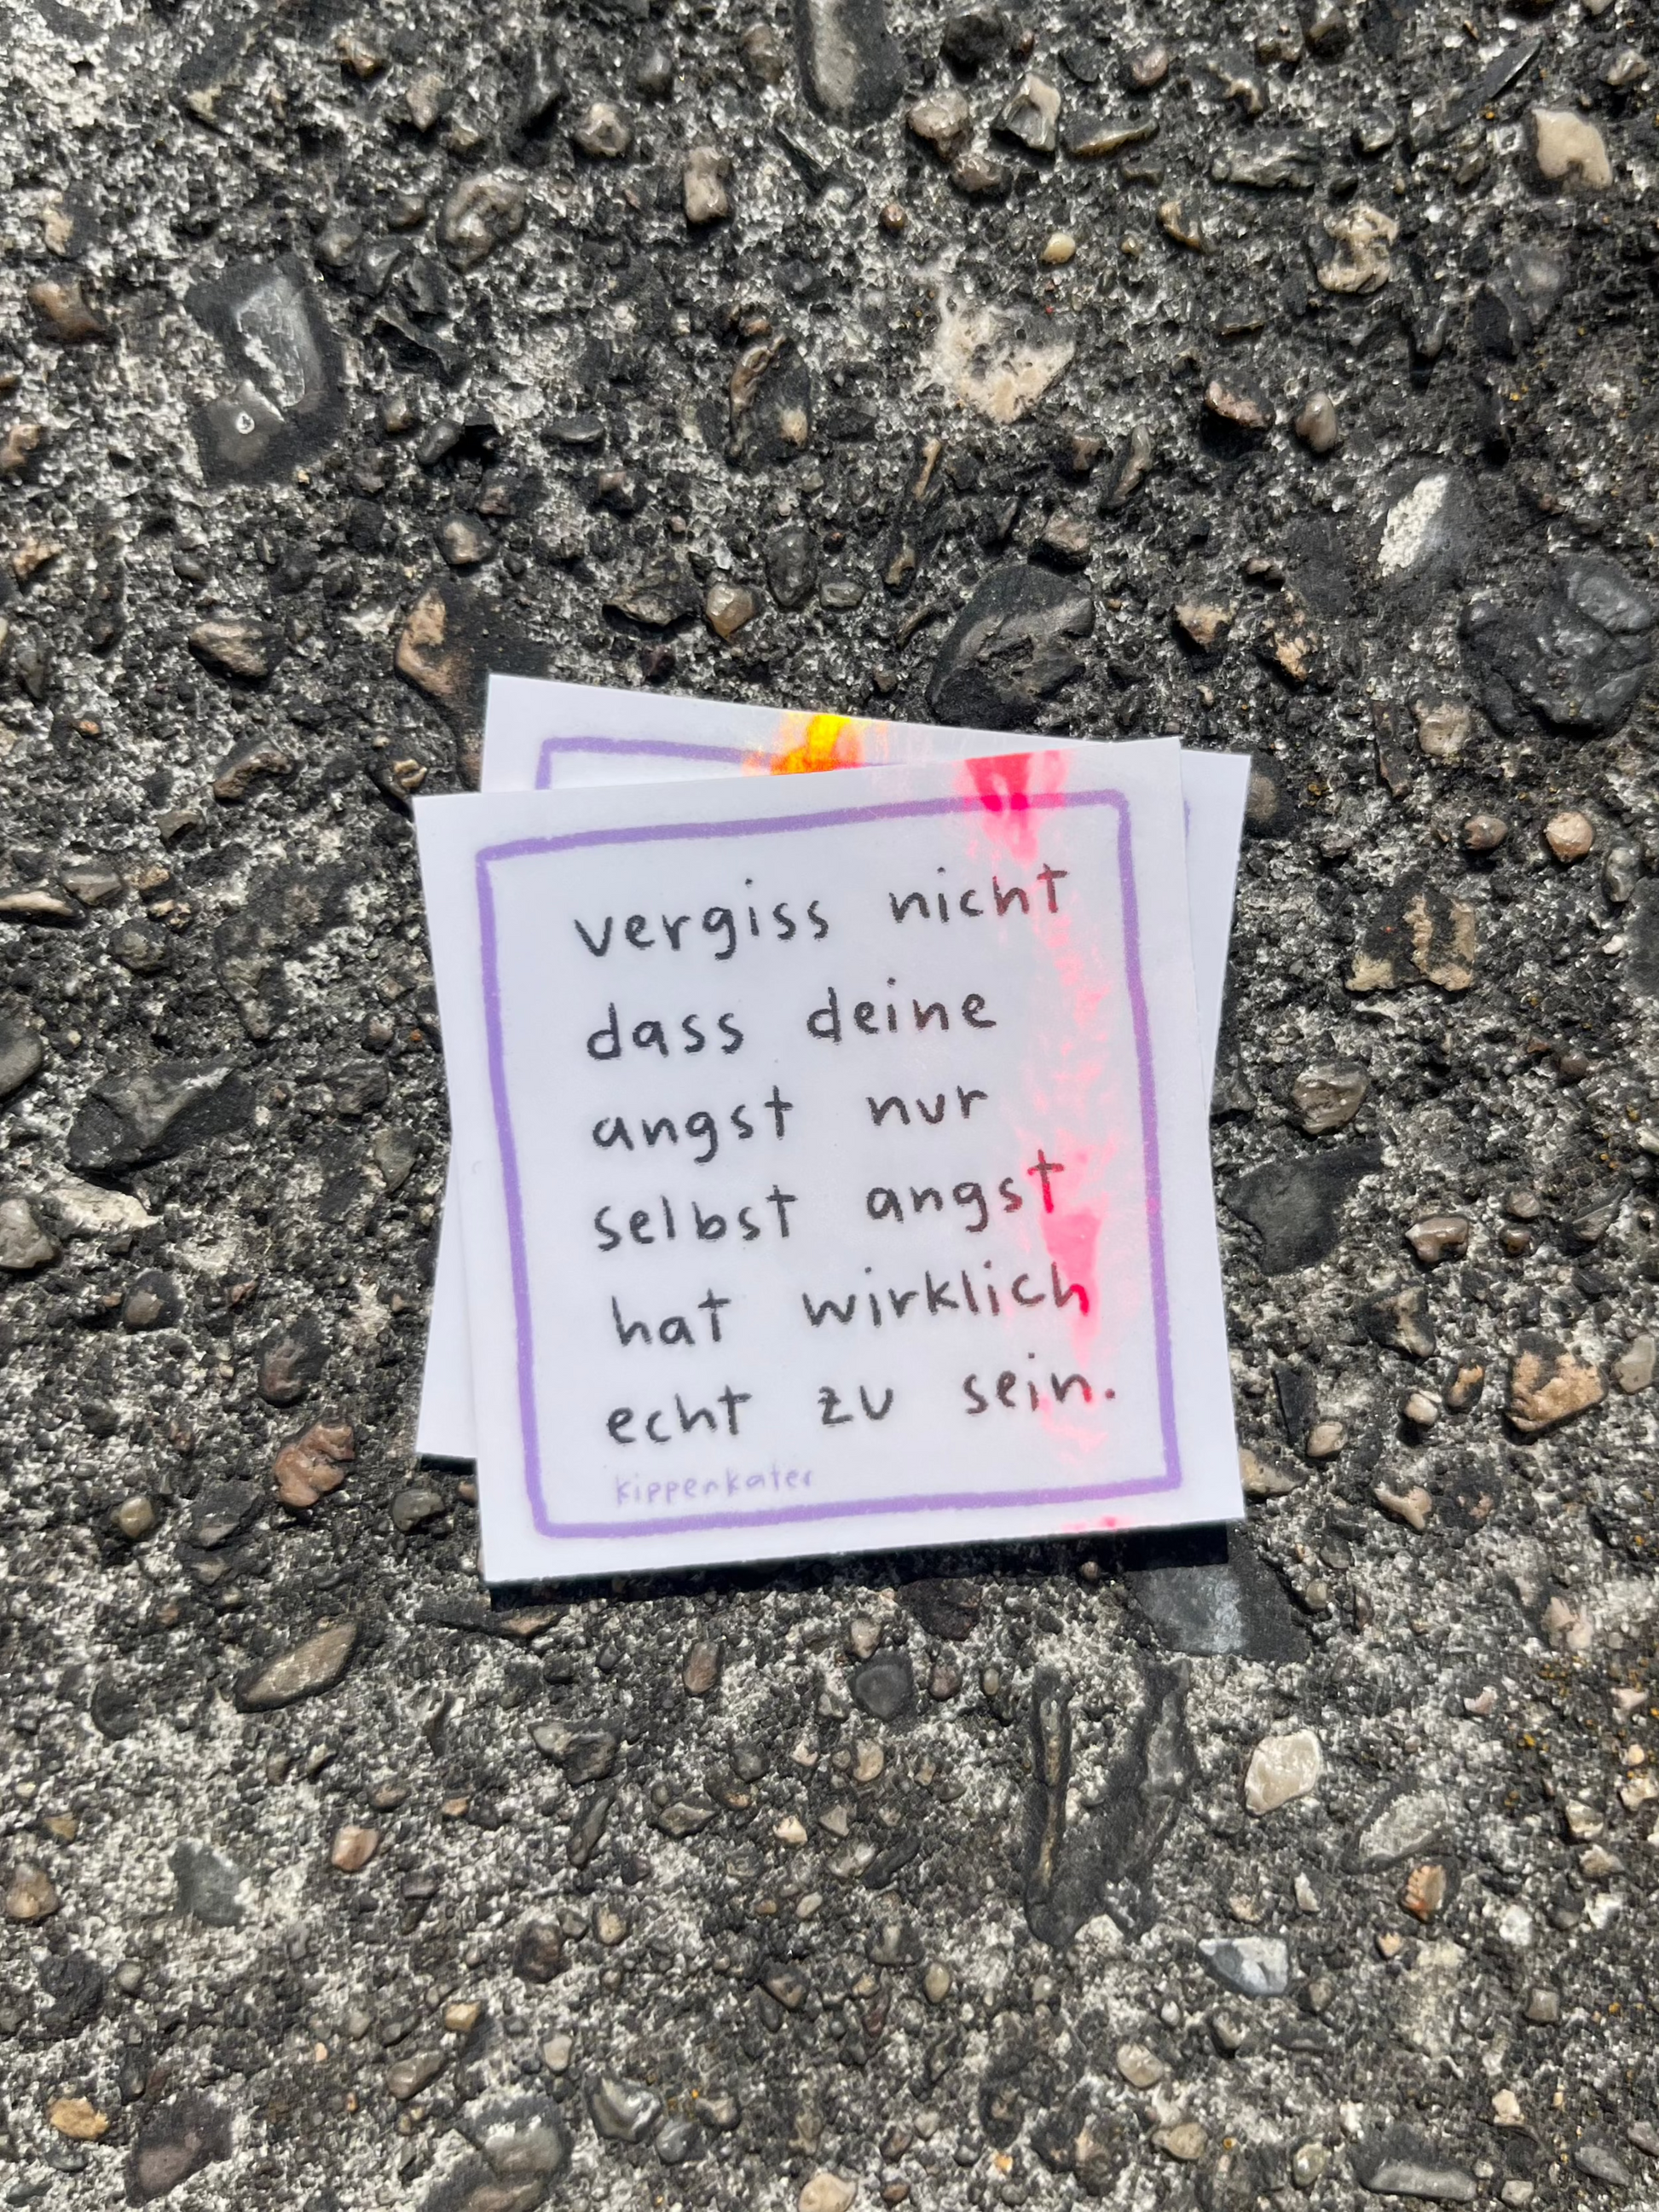 vergiss nicht
dass deine
angst nur
selbst angst
hat wirklich
echt zu sein.
kippenkater